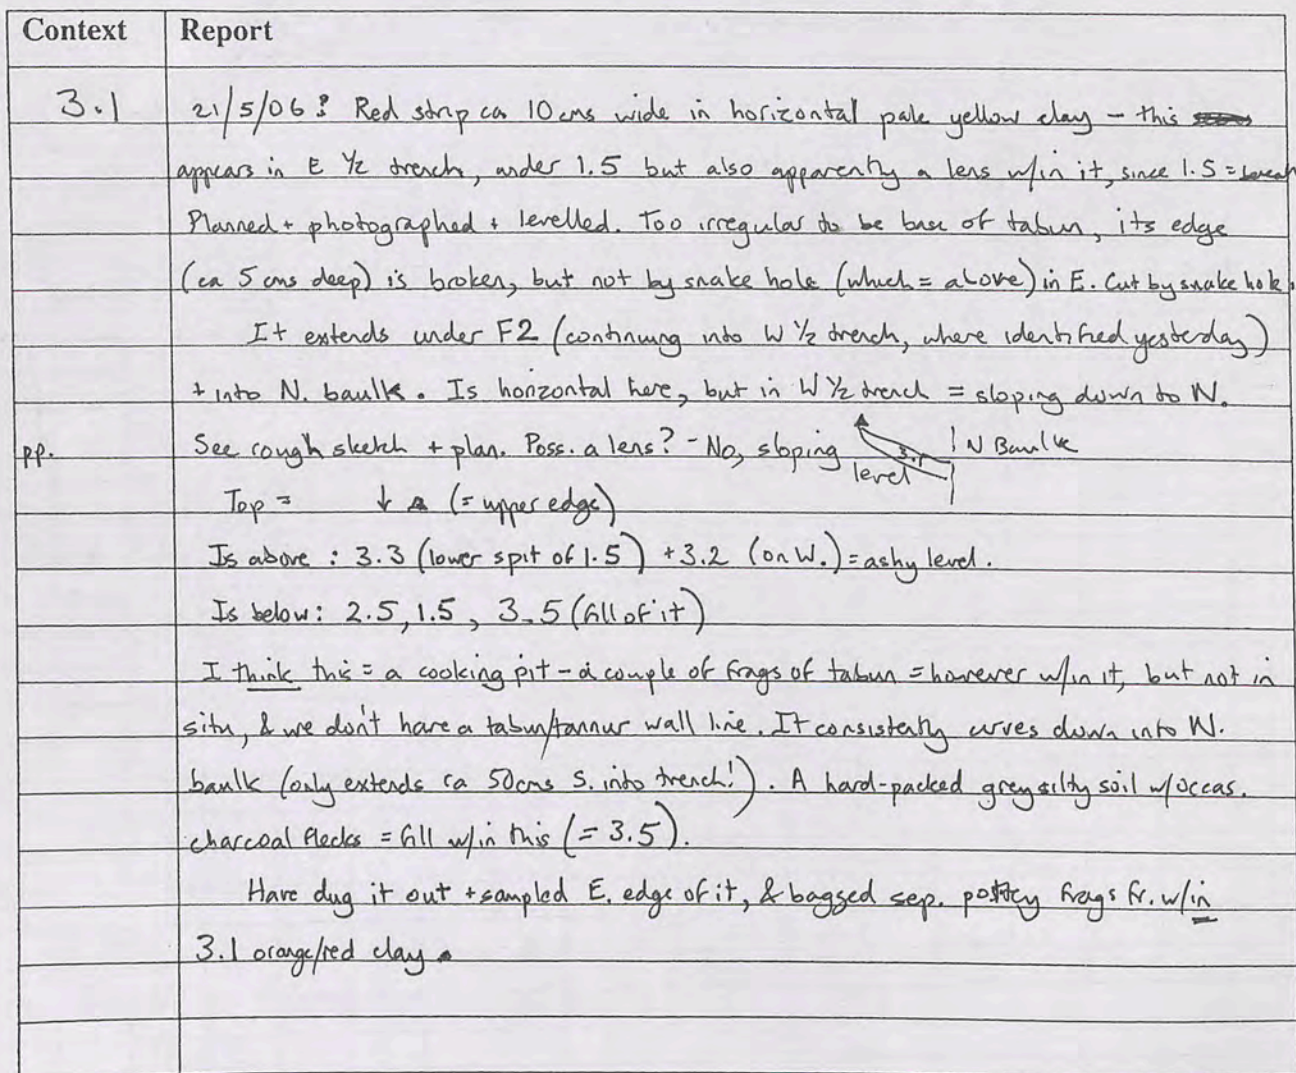 Context Report
3.1 21/5/06: Red strip ca 10 cms wide in horizontal pale yellow clay - this
appears in E 1/2 trench, under 1.5 but also apparently a lens w/in it, since 1.5 =
Planned + photographed + levelled. Too irregular to be base of tabun, its edge
(ca 5 cms deep) is broken, but not by snake hole (which = above) in E. Cut by snake hole.
It extends under F2 (continuing into W 1/2 trench, where identified yesterday)
+ into N. baulk. Is horizontal here, but in W 1/2 trench = sloping down to N.
pp. See rough sketch + plan. Poss. a lens? - No, sloping level 3.1 N Baulk
Top = ↓ (= upper edge)
Is above : 3.3 (lower spit of 1.5) + 3.2 (on W.) = ashy level.
Is below : 2.5, 1.5, 3.5 (fill of it)
I think this = a cooking pit - a couple of frags of tabun = however w/in it, but not in
situ, & we don't have a tabun/tannur wall line. It consistently curves down into N.
baulk (only extends ca 50cms S. into trench!). A hard-packed grey silty soil w/occas.
charcoal flecks = fill w/in this (= 3.5).
Have dug it out + sampled E. edge of it, & bagged sep. pottery frags fr. w/in
3.1 orange/red clay.